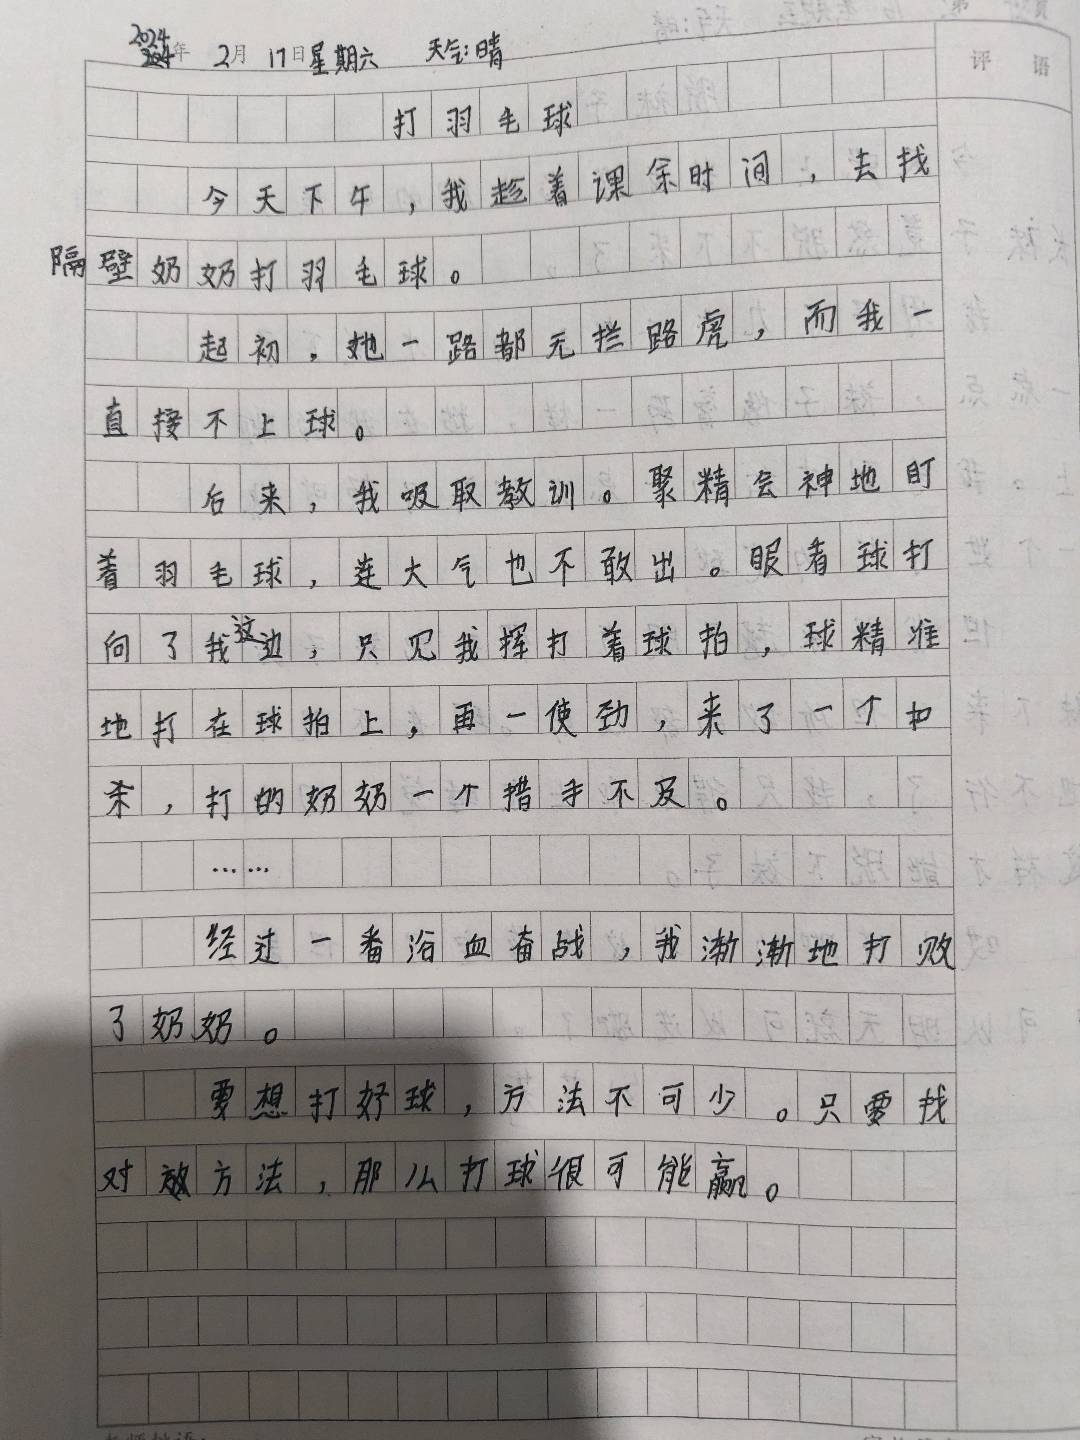 2024年 2月 17日星期六 天气:晴
评 语
打羽毛球
今天下午，我趁着课余时间，去找
隔壁奶奶打羽毛球。
起初，她一路都无拦路虎，而我一
直接不上球。
后来，我吸取教训。聚精会神地盯
着羽毛球，连大气也不敢出。眼看球打
向了我这边，只见我挥打着球拍，球精准
地打在球拍上，再一使劲，来了一个扣
杀，打的奶奶一个措手不及。
……
经过一番浴血奋战，我渐渐地打败
了奶奶。
要想打好球，方法不可少。只要找
对方法，那么打球很可能赢。